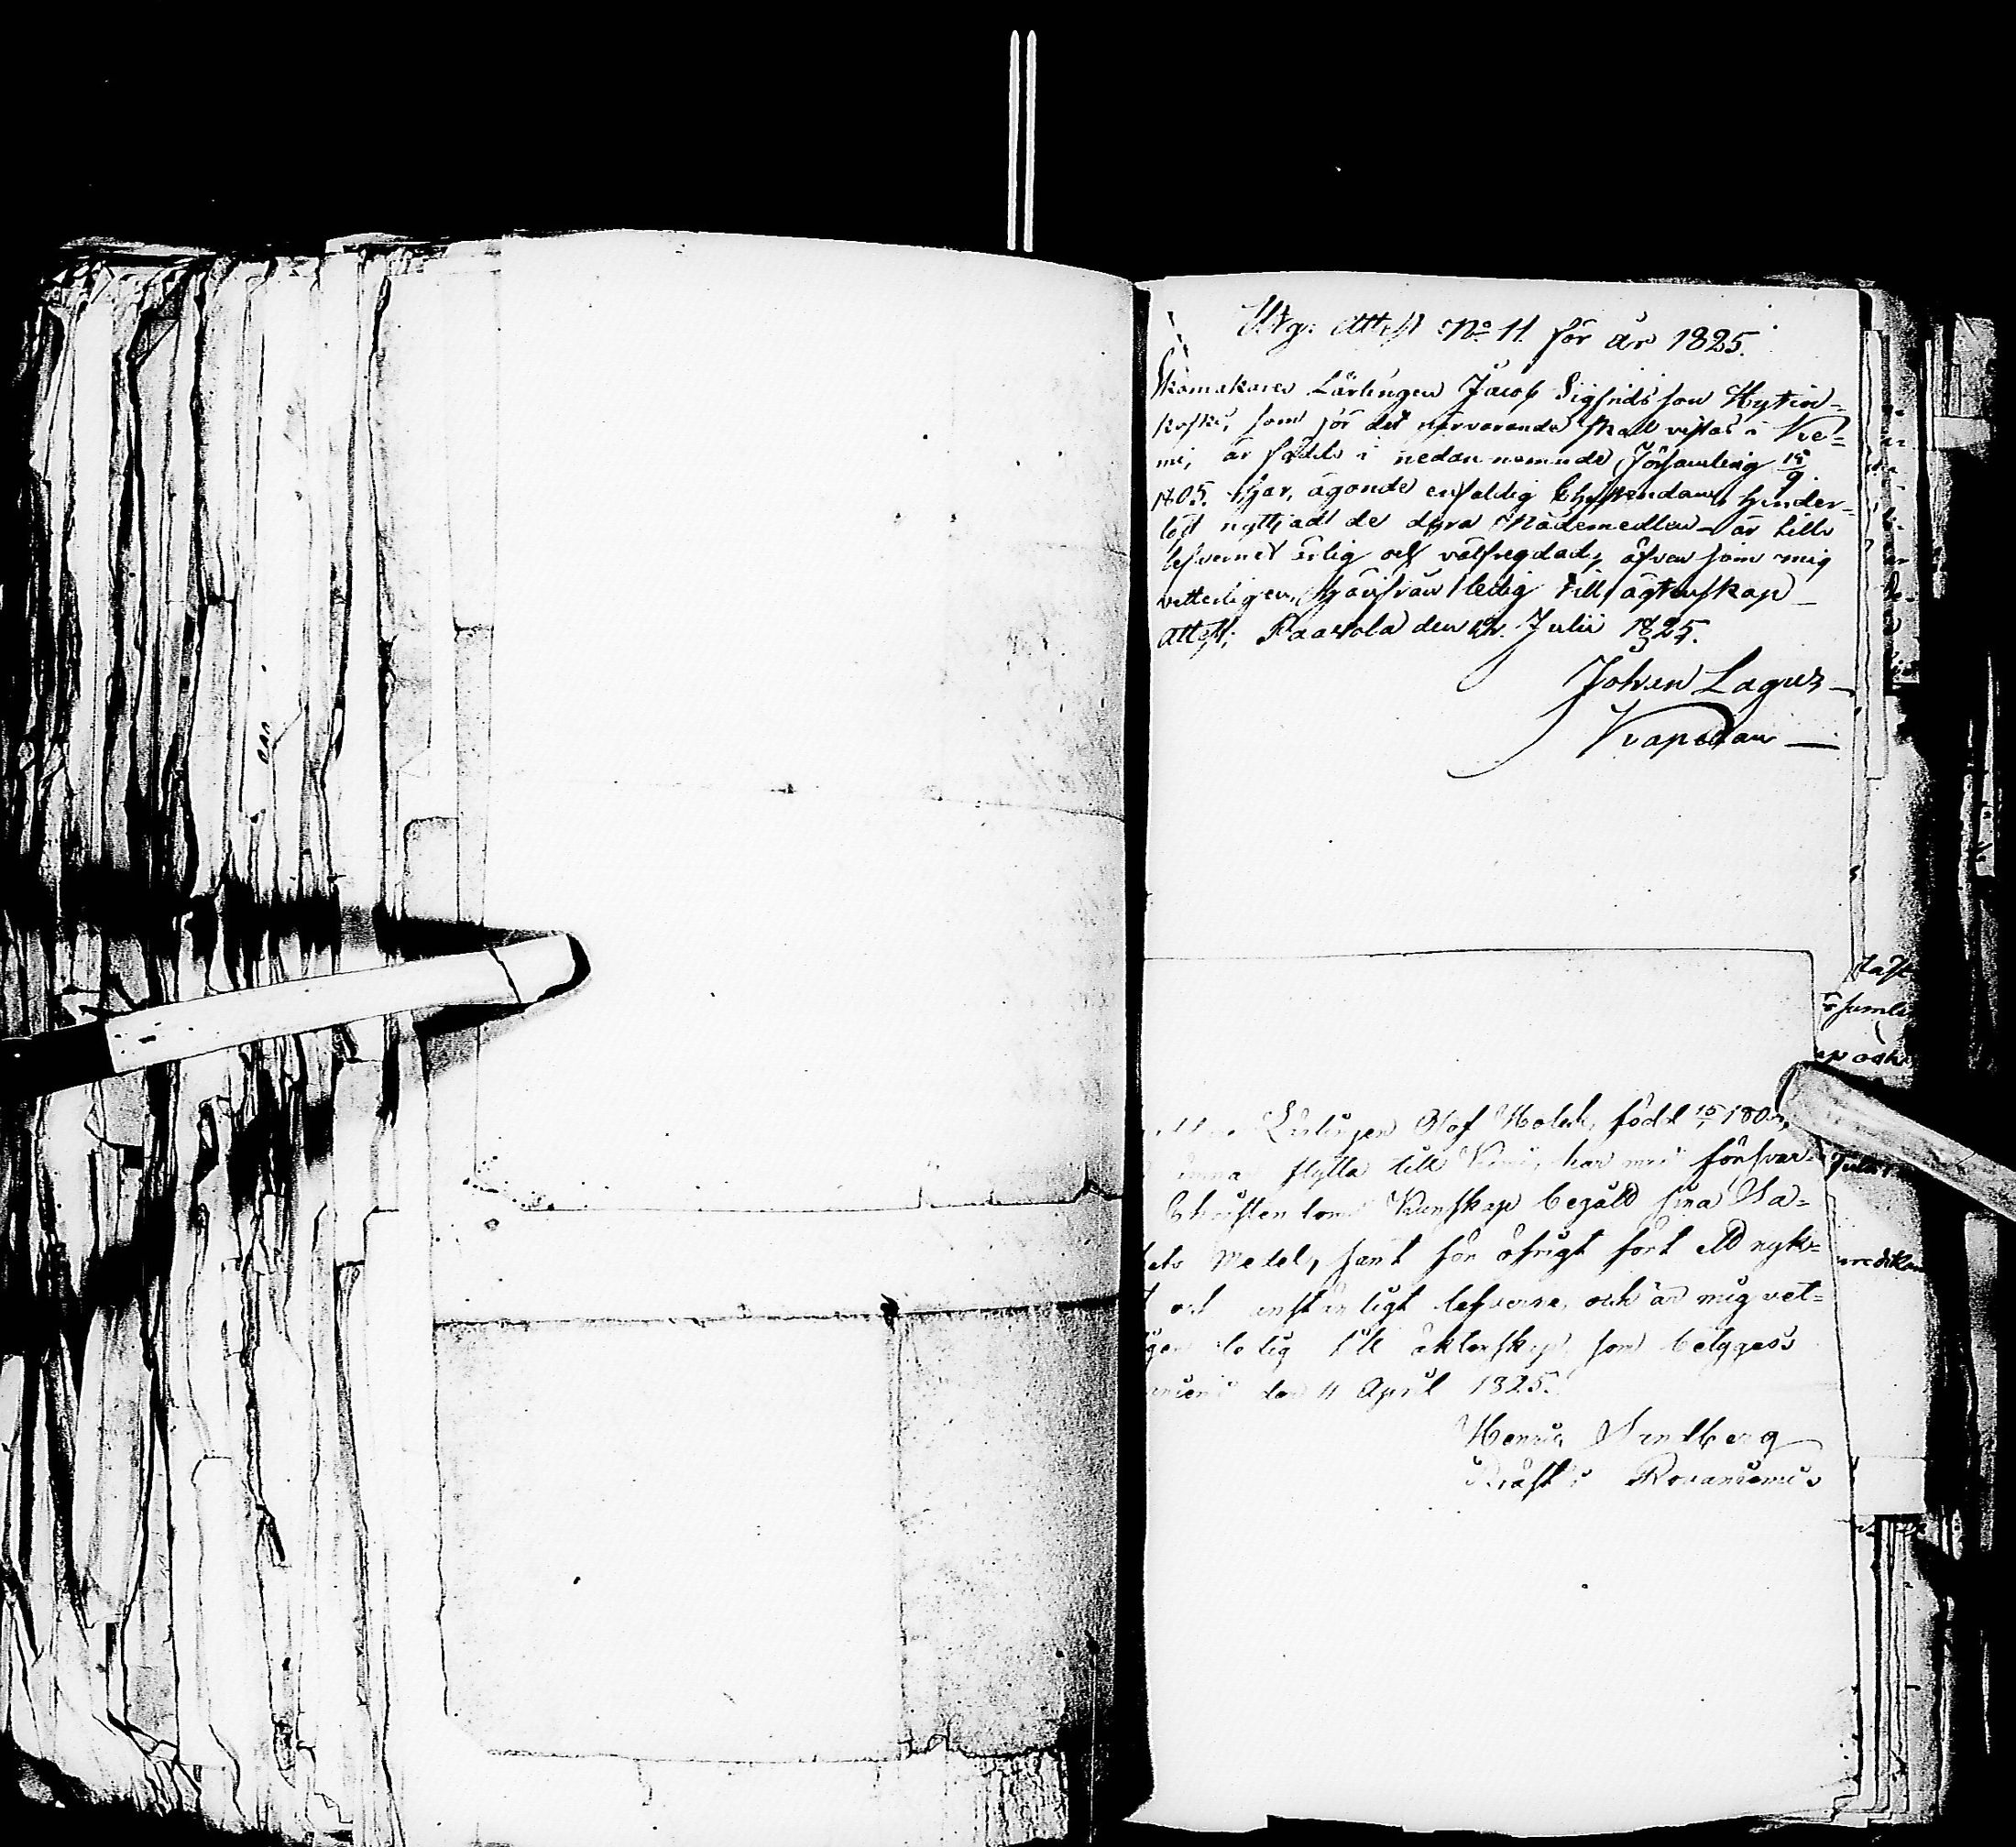 Utg: Attest No 11. för år 1825.
Skomakare Lärlingen Jacob Sigfrids son Hytin-
koski, som för det närvarande skall vistas i Kie-
mi, är född i nedan nemnde församling 15/9
1805. Har, ägande enfaldig Christendom, hinder-
löst nyttjadt de dyra Nådemedlen – är till
lefvernet ärlig och välfregdad, äfven som mig
vetterligen, härifrån ledig till ägtenskap –
attest; Paavola den Julii 1825.
Johan Lagus –
Kapellan —
Lärlingen Olof född 15 180
ämnar flytta till Kemi, har med försvar-
Christendoms Kunskap begådt sina Sa-
Medel, samt för öfrigt fört ett nyk-
och anständigt lefverne, och är mig vet-
ledig till äktenskap, som betygas
den 11 April 1825.
Henric Sandberg
Rovaniemi